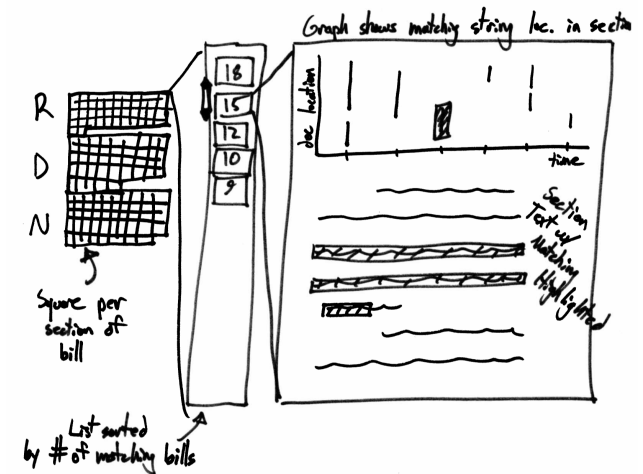 Graph shows matching string loc. in section
R
D
N
18
15
12
10
9
doc location
time
Section
Text w/
Matching
Highlighted
Square per
section of
bill
List sorted
by # of matching bills